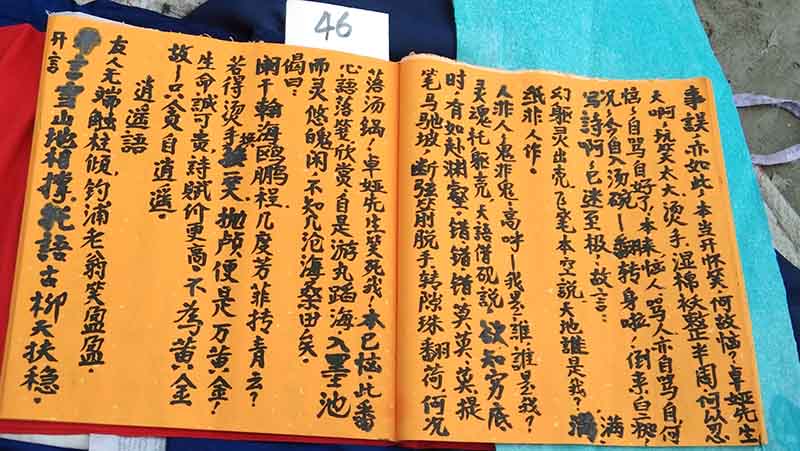 46
事誤亦如此,本当开怀笑,何故恼?卓娅先生
天啊!玩笑太大,烫手,湿棉袄整半周何以忍
恼,自骂自好了,本来恼人骂人亦自骂自何
况今自入汤碗——翻转身啦!倒来白痴!
写詩啊,已迷至极,故言: 满满
幻躯灵出壳,飞笔本空说,天地誰是我?
纸非人作。
人非人,鬼非鬼,高呼——我是誰誰是我?
灵魂托躯壳,天語借砚說 欲知穷底
时,有如赴渊察,错,错,错,莫,莫,莫提
笔马驰坡 断弦箭脱手转隙珠翻荷,何况
落汤锅!卓娅先生笑死我!本已恼此番
心語落笺欣赏,自是游丸蹈海入墨池
而灵悠魄闲,不知几沧海桑田矣。
偈曰:
阑干翰海鸥鹏程,几度芳菲抟青云?
若得烫手换一笑,抛颅便是万黄金!
生命誠可贵,詩赋价更高,不為黄金
故——只贪自逍遥。
逍遥語
友人无端触柱倾,钓浦老翁笑盈盈。
开言雪山地相撑,我語古柳天扶稳。
开言